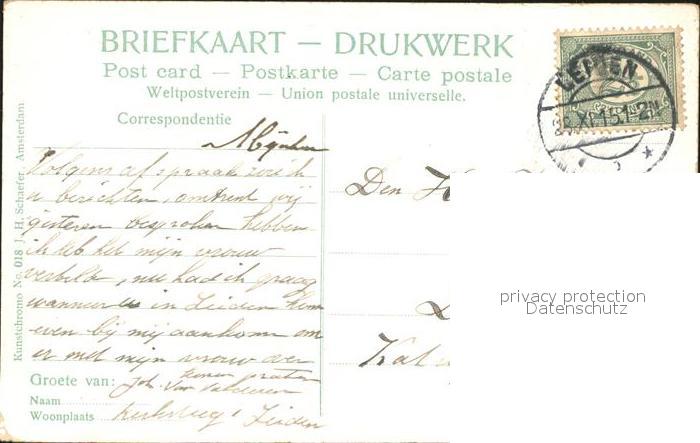 BRIEFKAART — DRUKWERK
Post card — Postkarte — Carte postale
Weltpostverein — Union postale universelle.
Correspondentie
Mijnheer
Volgens afspraak zou ik
u berichten, omtrent wij
gisteren besproken hebben
ik heb het mijn vrouw
verteld, nu had ik graag
wanneer u in Leiden kom
even bij mij aankomt om
er met mijn vrouw over
komen praten
Groete van: Joh. Van
Naam
Woonplaats Leiden
Kunstchromo No. 018 J. H. Schaefer, Amsterdam
Den H
Kat
privacy protection
Datenschutz